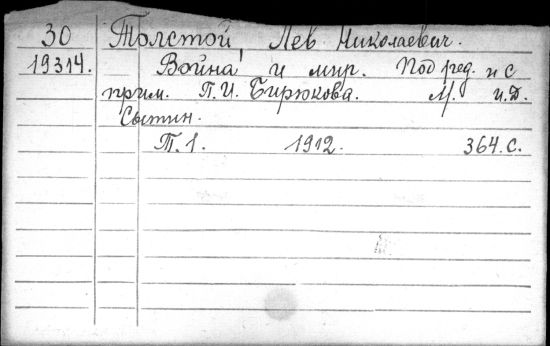 30 Толстой, Лев Николаевич.
19314. Война и мир. Под ред. и с
прим. П.И. Бирюкова. М. И.Д.
Сытин.
Т.1. 1912. 364.с.